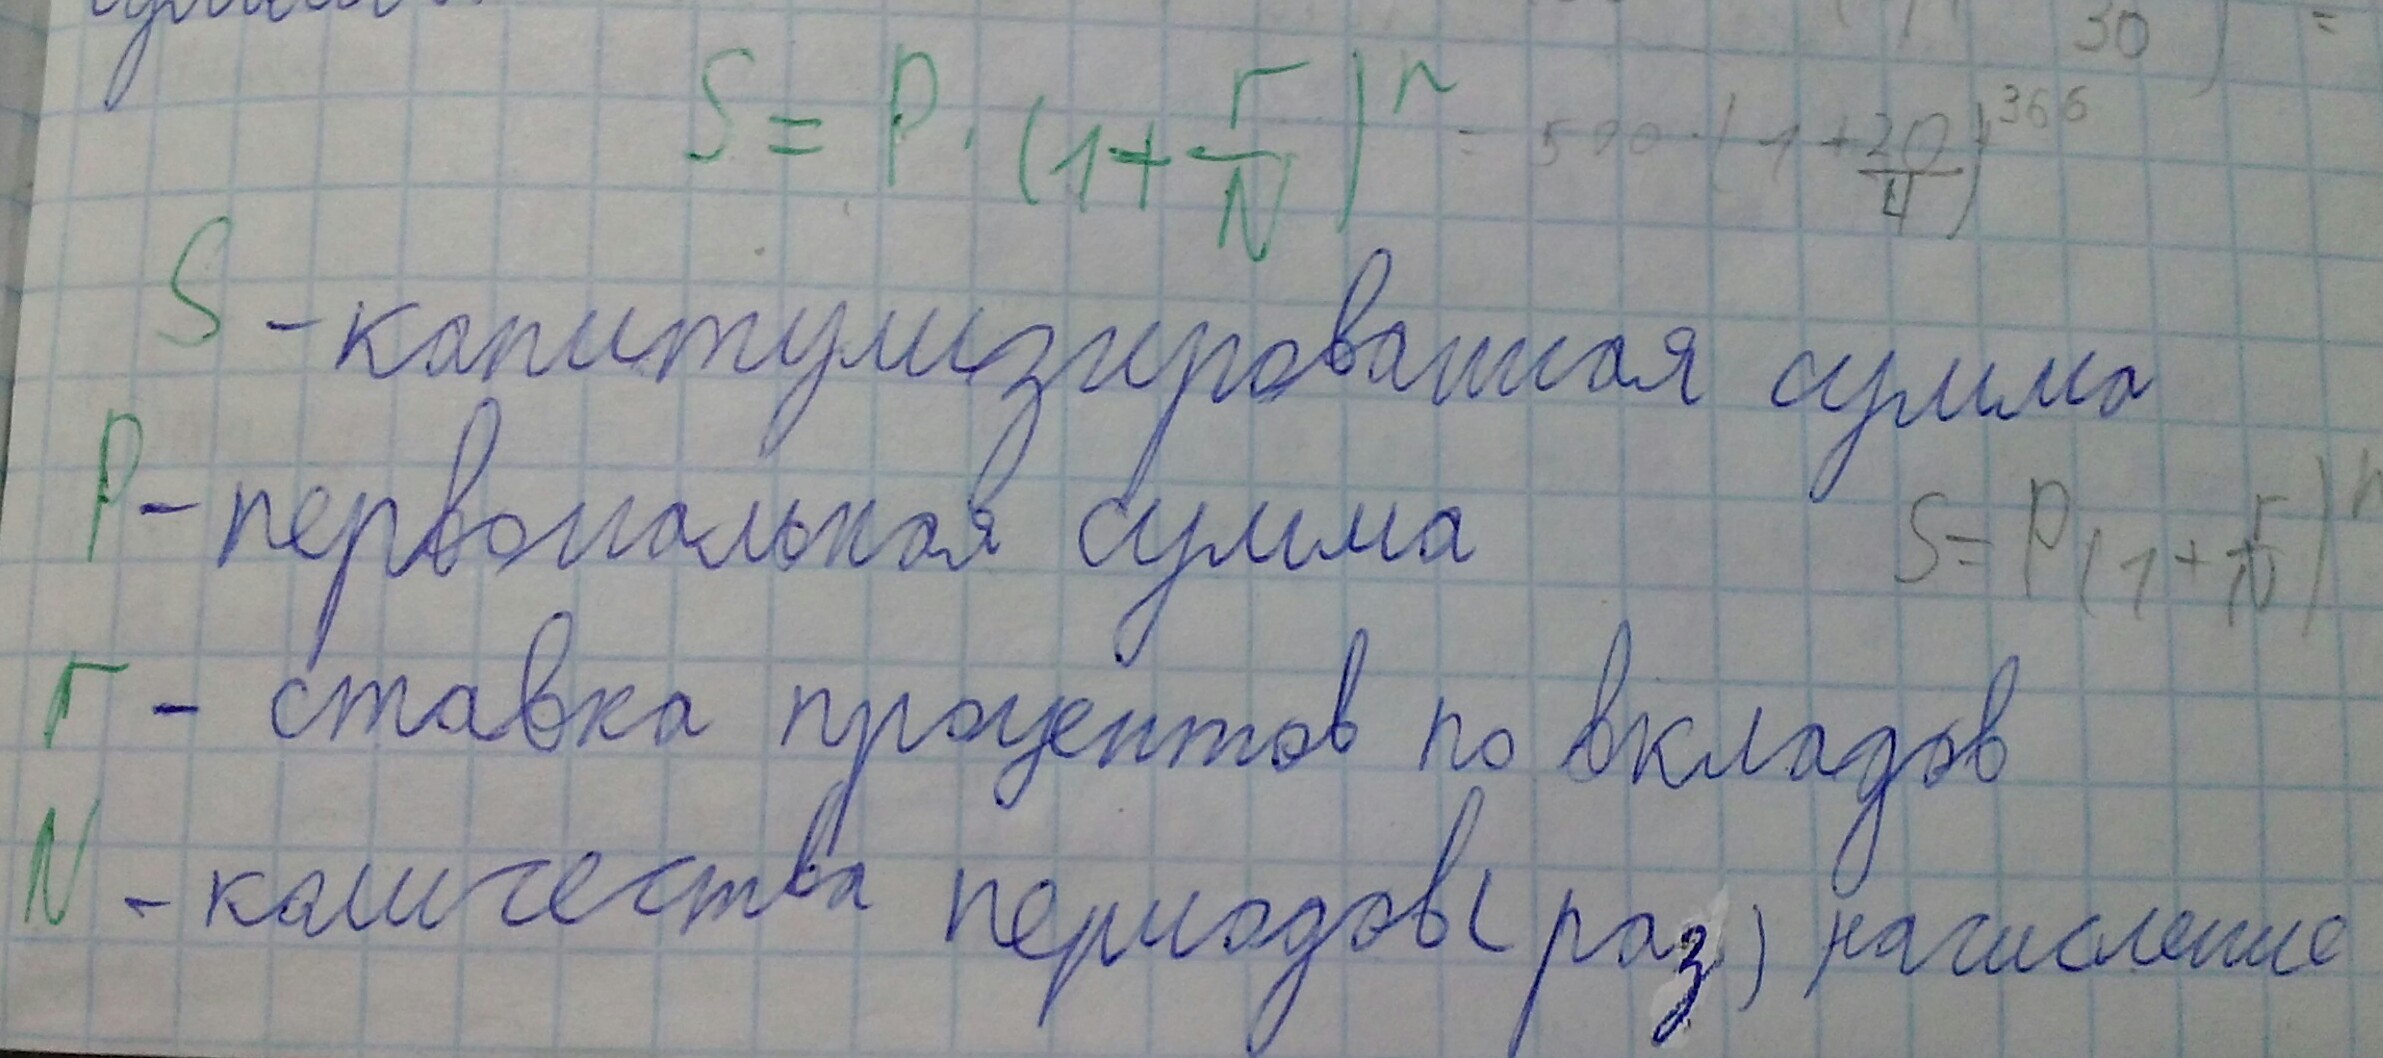 30 ) =
S = P · (1 + r/N)^n = 500 · (1 + 20/4)^366
S - капитулизированная сумма
P - первональная сумма
S = P (1 + r/N)^n
r - ставка процентов по вкладов
N - количества периодов (раз) начисление